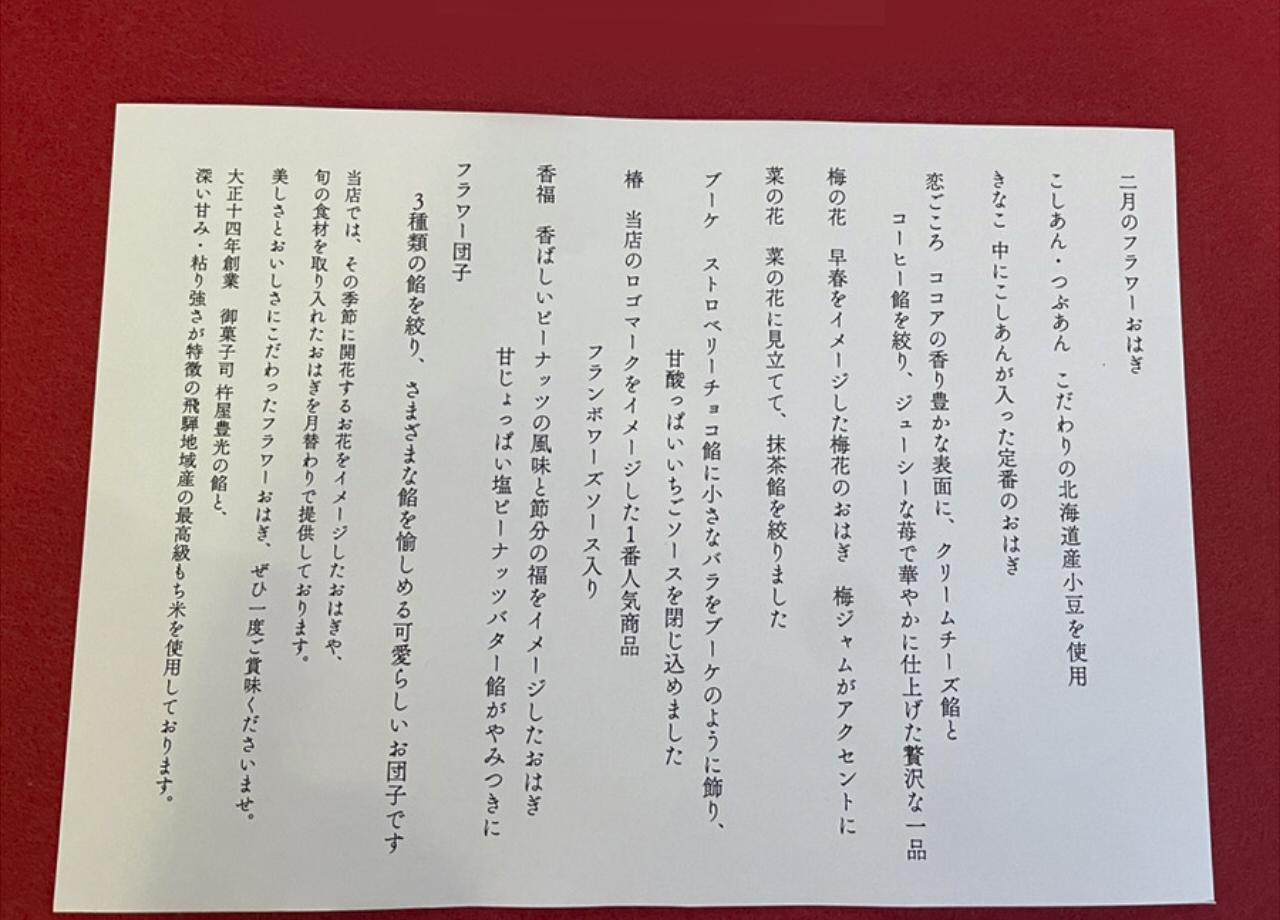 二月のフラワーおはぎ
こしあん・つぶあん こだわりの北海道産小豆を使用
きなこ 中にこしあんが入った定番のおはぎ
恋ごころ ココアの香り豊かな表面に、クリームチーズ餡と
コーヒー餡を絞り、ジューシーな苺で華やかに仕上げた贅沢な一品
梅の花 早春をイメージした梅花のおはぎ 梅ジャムがアクセントに
菜の花 菜の花に見立てて、抹茶餡を絞りました
ブーケ ストロベリーチョコ餡に小さなバラをブーケのように飾り、
甘酸っぱいいちごソースを閉じ込めました
椿 当店のロゴマークをイメージした1番人気商品
フランボワーズソース入り
香福 香ばしいピーナッツの風味と節分の福をイメージしたおはぎ
甘じょっぱい塩ピーナッツバター餡がやみつきに
フラワー団子
3種類の餡を絞り、さまざまな餡を愉しめる可愛らしいお団子です
当店では、その季節に開花するお花をイメージしたおはぎや、
旬の食材を取り入れたおはぎを月替わりで提供しております。
美しさとおいしさにこだわったフラワーおはぎ、ぜひ一度ご賞味くださいませ。
大正十四年創業 御菓子司 杵屋豊光の餡と、
深い甘み・粘り強さが特徴の飛騨地域産の最高級もち米を使用しております。